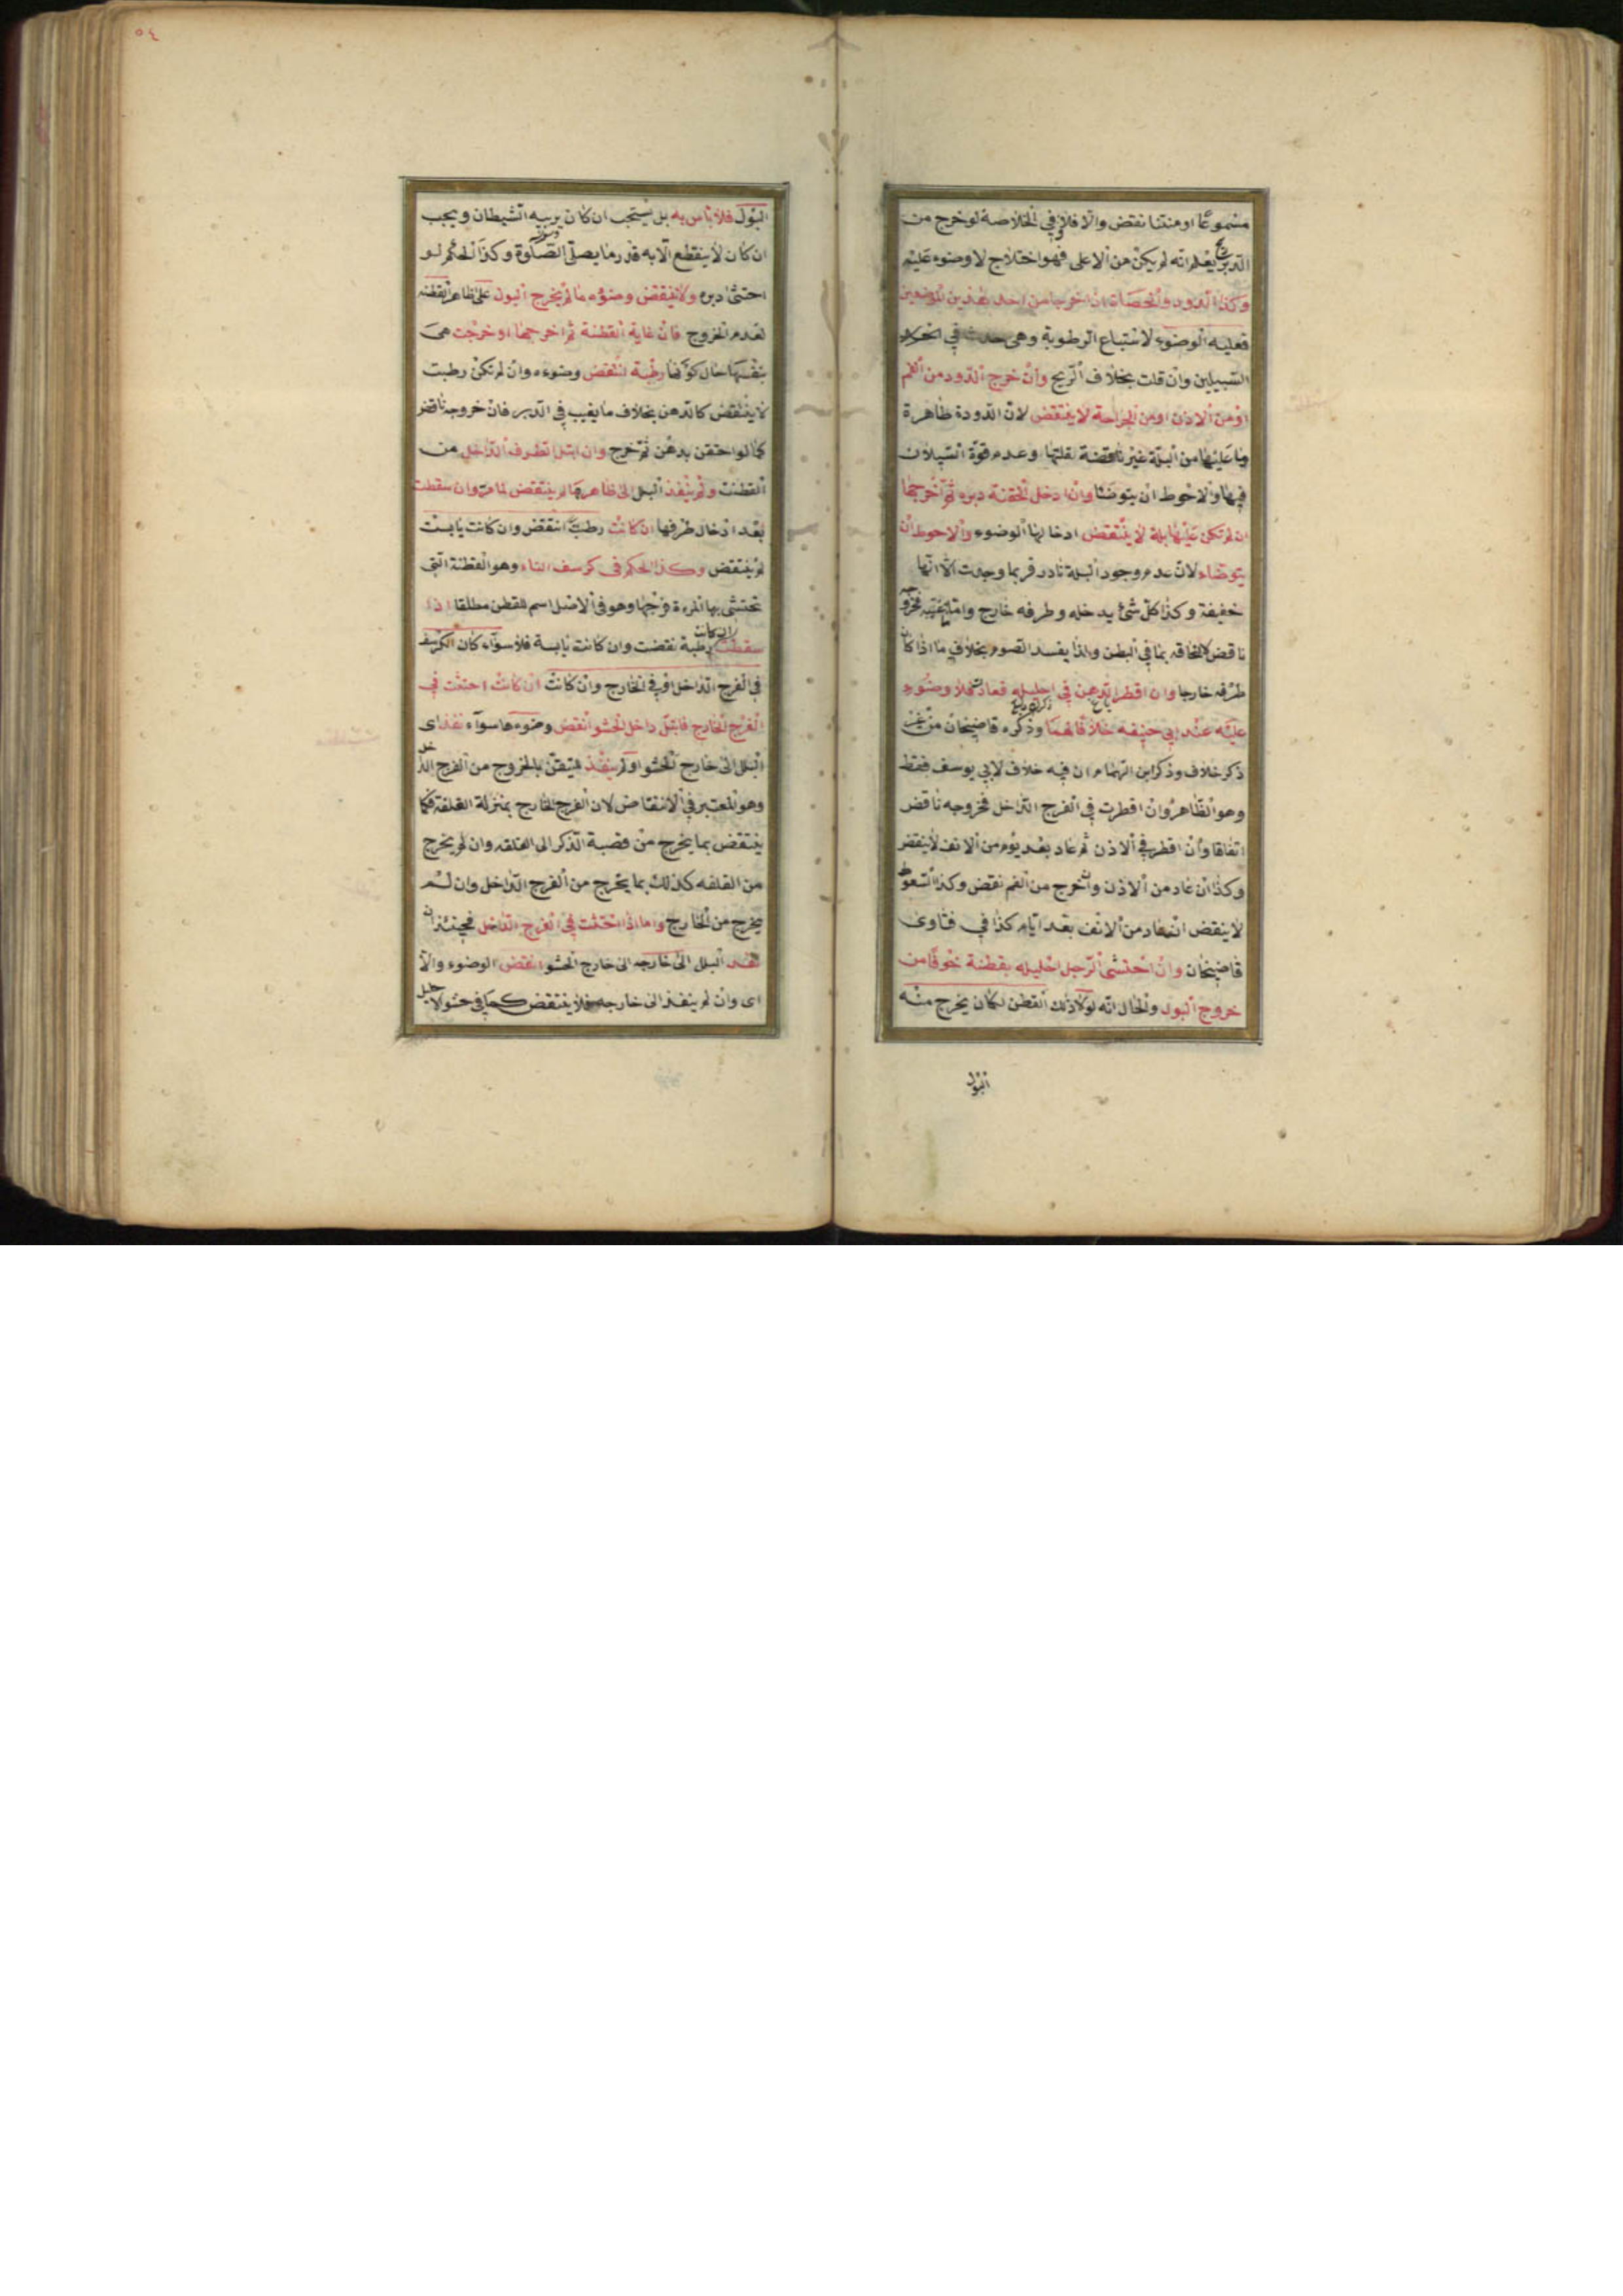 مسموعا او منتنا نقض والا فلا وفي الخلاصة لو خرج من
الدبر ريح يعلم انه لم يكن من الاعلى فهو اختلاج لا وضوء عليه
وكذا الدود والحصاة اذا خرجا من احد هذين الموضعين
فعليه الوضوء لاستتباع الرطوبة وهي حدث في
السبيلين وان قلت بخلاف الريح وان خرج الدود من الفم
او من الاذن او من الجراحة لا ينتقض لان الدودة طاهرة
وما عليها من البلة غير ناقضة لقلتها وعدم قوة السيلان
فيها والاحوط ان يتوضئا وان ادخل الحقنة دبره ثم اخرجها
ان لم تكن عليها بلة لا ينتقض ادخالها الوضوء والاحوط ان
يتوضاء لان عدم وجود البلة نادر فربما وجدت الا انها
خفيفة وكذا كل شئ يدخله وطرفه خارج واما فخروجه
ناقض لالتحاقه بما في البطن ولذا يفسد الصوم بخلاف ما اذا كان
طرفه خارجا وان اقطر الدهن في احليله فعاد فلا وضوء
عليه عند ابي حنيفه خلافا لهما وذكره قاضيخان من غير
ذكر خلاف وذكر ابن الهمام ان فيه خلاف لابي يوسف فقط
وهو الظاهر وان اقطرت في الفرج الداخل فخروجه ناقض
اتفاقا وان اقطر في الاذن ثم عاد بعد يوم من الانف لا ينقض
وكذا ان عاد من الاذن وان خرج من الفم نقض وكذا السعوط
لا ينقض ان عاد من الانف بعد ايام كذا في فتاوى
قاضيخان وان احتشى الرجل احليله بقطنة خوفا من
خروج البول والحال انه لولا ذلك القطن لكان يخرج منه
البول
٥٤
البول فلا بأس به بل يستحب ان كان يريبه الشيطان ويجب
ان كان لا ينقطع الا به قدر ما يصلى الصلوة وكذا الحكم لو
احتشى دبره ولا ينتقض وضوءه ما لم يخرج البول على ظاهر القطنة
لعدم الخروج فان غابة القطنة ثم اخرجها او خرجت هي
بنفسها حال كونها رطبة انتقض وضوءه وان لم تكن رطبت
لا ينتقض كالدهن بخلاف ما يغيب في الدبر فان خروجه ناقض
كما لو احتقن بدهن ثم خرج وان ابتل الطرف الداخل من
القطنت ولم ينفذ البلل الى ظاهرها لم ينتقض لما مر وان سقطت
بعد ادخال طرفها ان كانت رطبت انتقض وان كانت يابست
لم ينتقض وكذا الحكم في كرسف النساء وهو القطنة التي
تحتشى بها المرءة فرجها وهو في الاصل اسم للقطن مطلقا اذا
سقطت ان كانت رطبة نقضت وان كانت يابسة فلا سوآء كان الكرسف
في الفرج الداخل او في الخارج وان كانت ان كانت احتشت في
الفرج الخارج فابتل داخل الحشو انتقض وضوءها سوآء نفذ اى
البلل الى خارج الحشو او لم ينفذ لليتقن بالخروج من الفرج الداخل
وهو المعتبر في الانتقاض لان الفرج الخارج بمنزلة القلفة فكما
ينتقض بما يخرج من قصبة الذكر الى القلفه وان لم يخرج
من القلفه كذلك بما يخرج من الفرج الداخل وان لم
يخرج من الخارج واما اذا احتشت في الفرج الداخل فحينئذ ان
نفذ البلل الى خارجه الى خارج الحشو انتقض الوضوء والا
اى وان لم ينفذ الى خارجه فلا ينتقض كما في حشو الاحليل